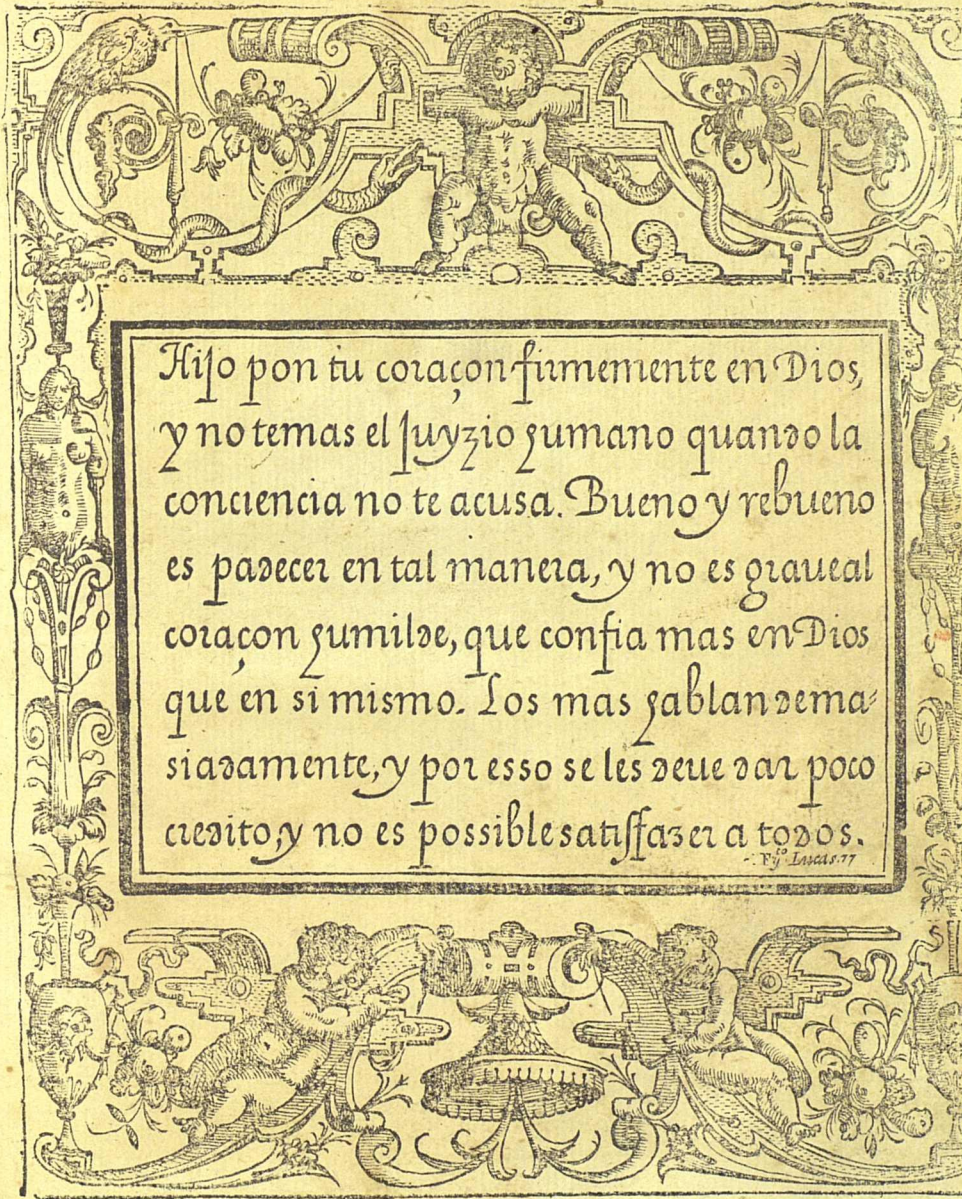 Hijo pon tu coraçon firmemente en Dios,
y no temas el juyzio humano quando la
conciencia no te acusa. Bueno y rebueno
es padecer en tal manera, y no es graue al
coraçon humilde, que confia mas en Dios
que en si mismo. Los mas hablan dema-
siadamente, y por esso se les deue dar poco
credito, y no es possible satisfazer a todos.
Lucas. 77